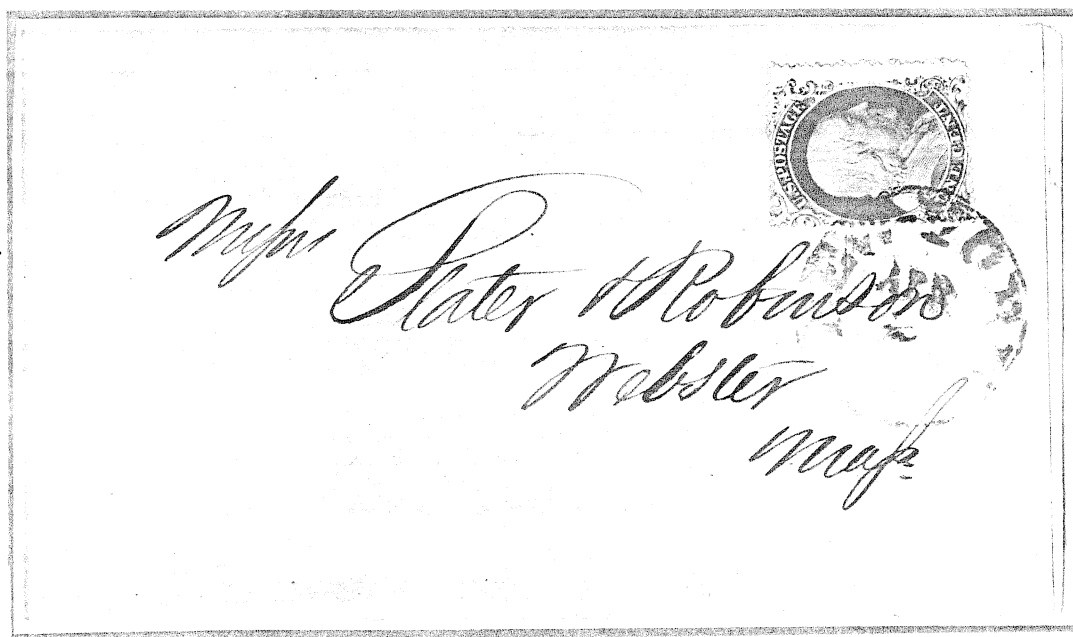 U.S. POSTAGE
ONE CENT
Messrs
Slater & Robinson
Webster
Mass